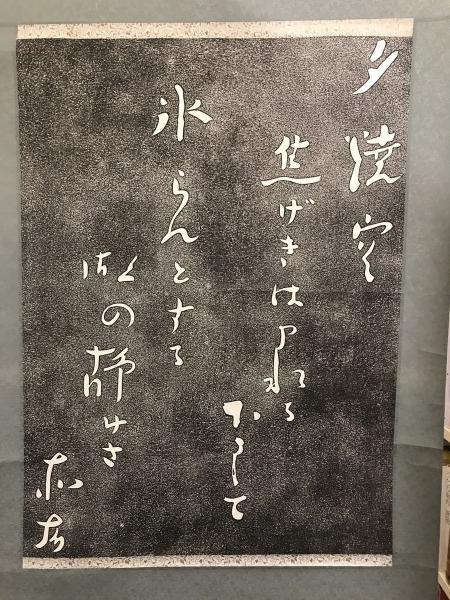 夕燒空
焦げきはまれる
下にして
氷らんとする
湖の静けさ
赤彦